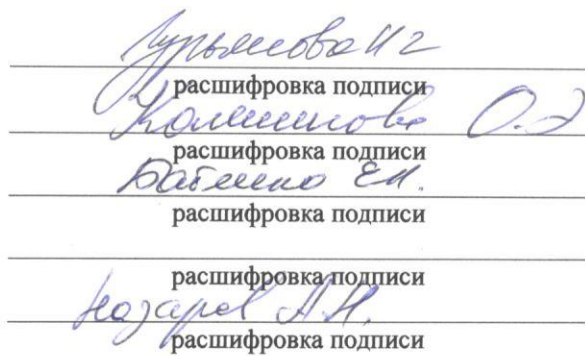 Гурьянова И г
расшифровка подписи
О.Э
расшифровка подписи
Батенко Е.Н.
расшифровка подписи
расшифровка подписи
Назаров А.Н.
расшифровка подписи